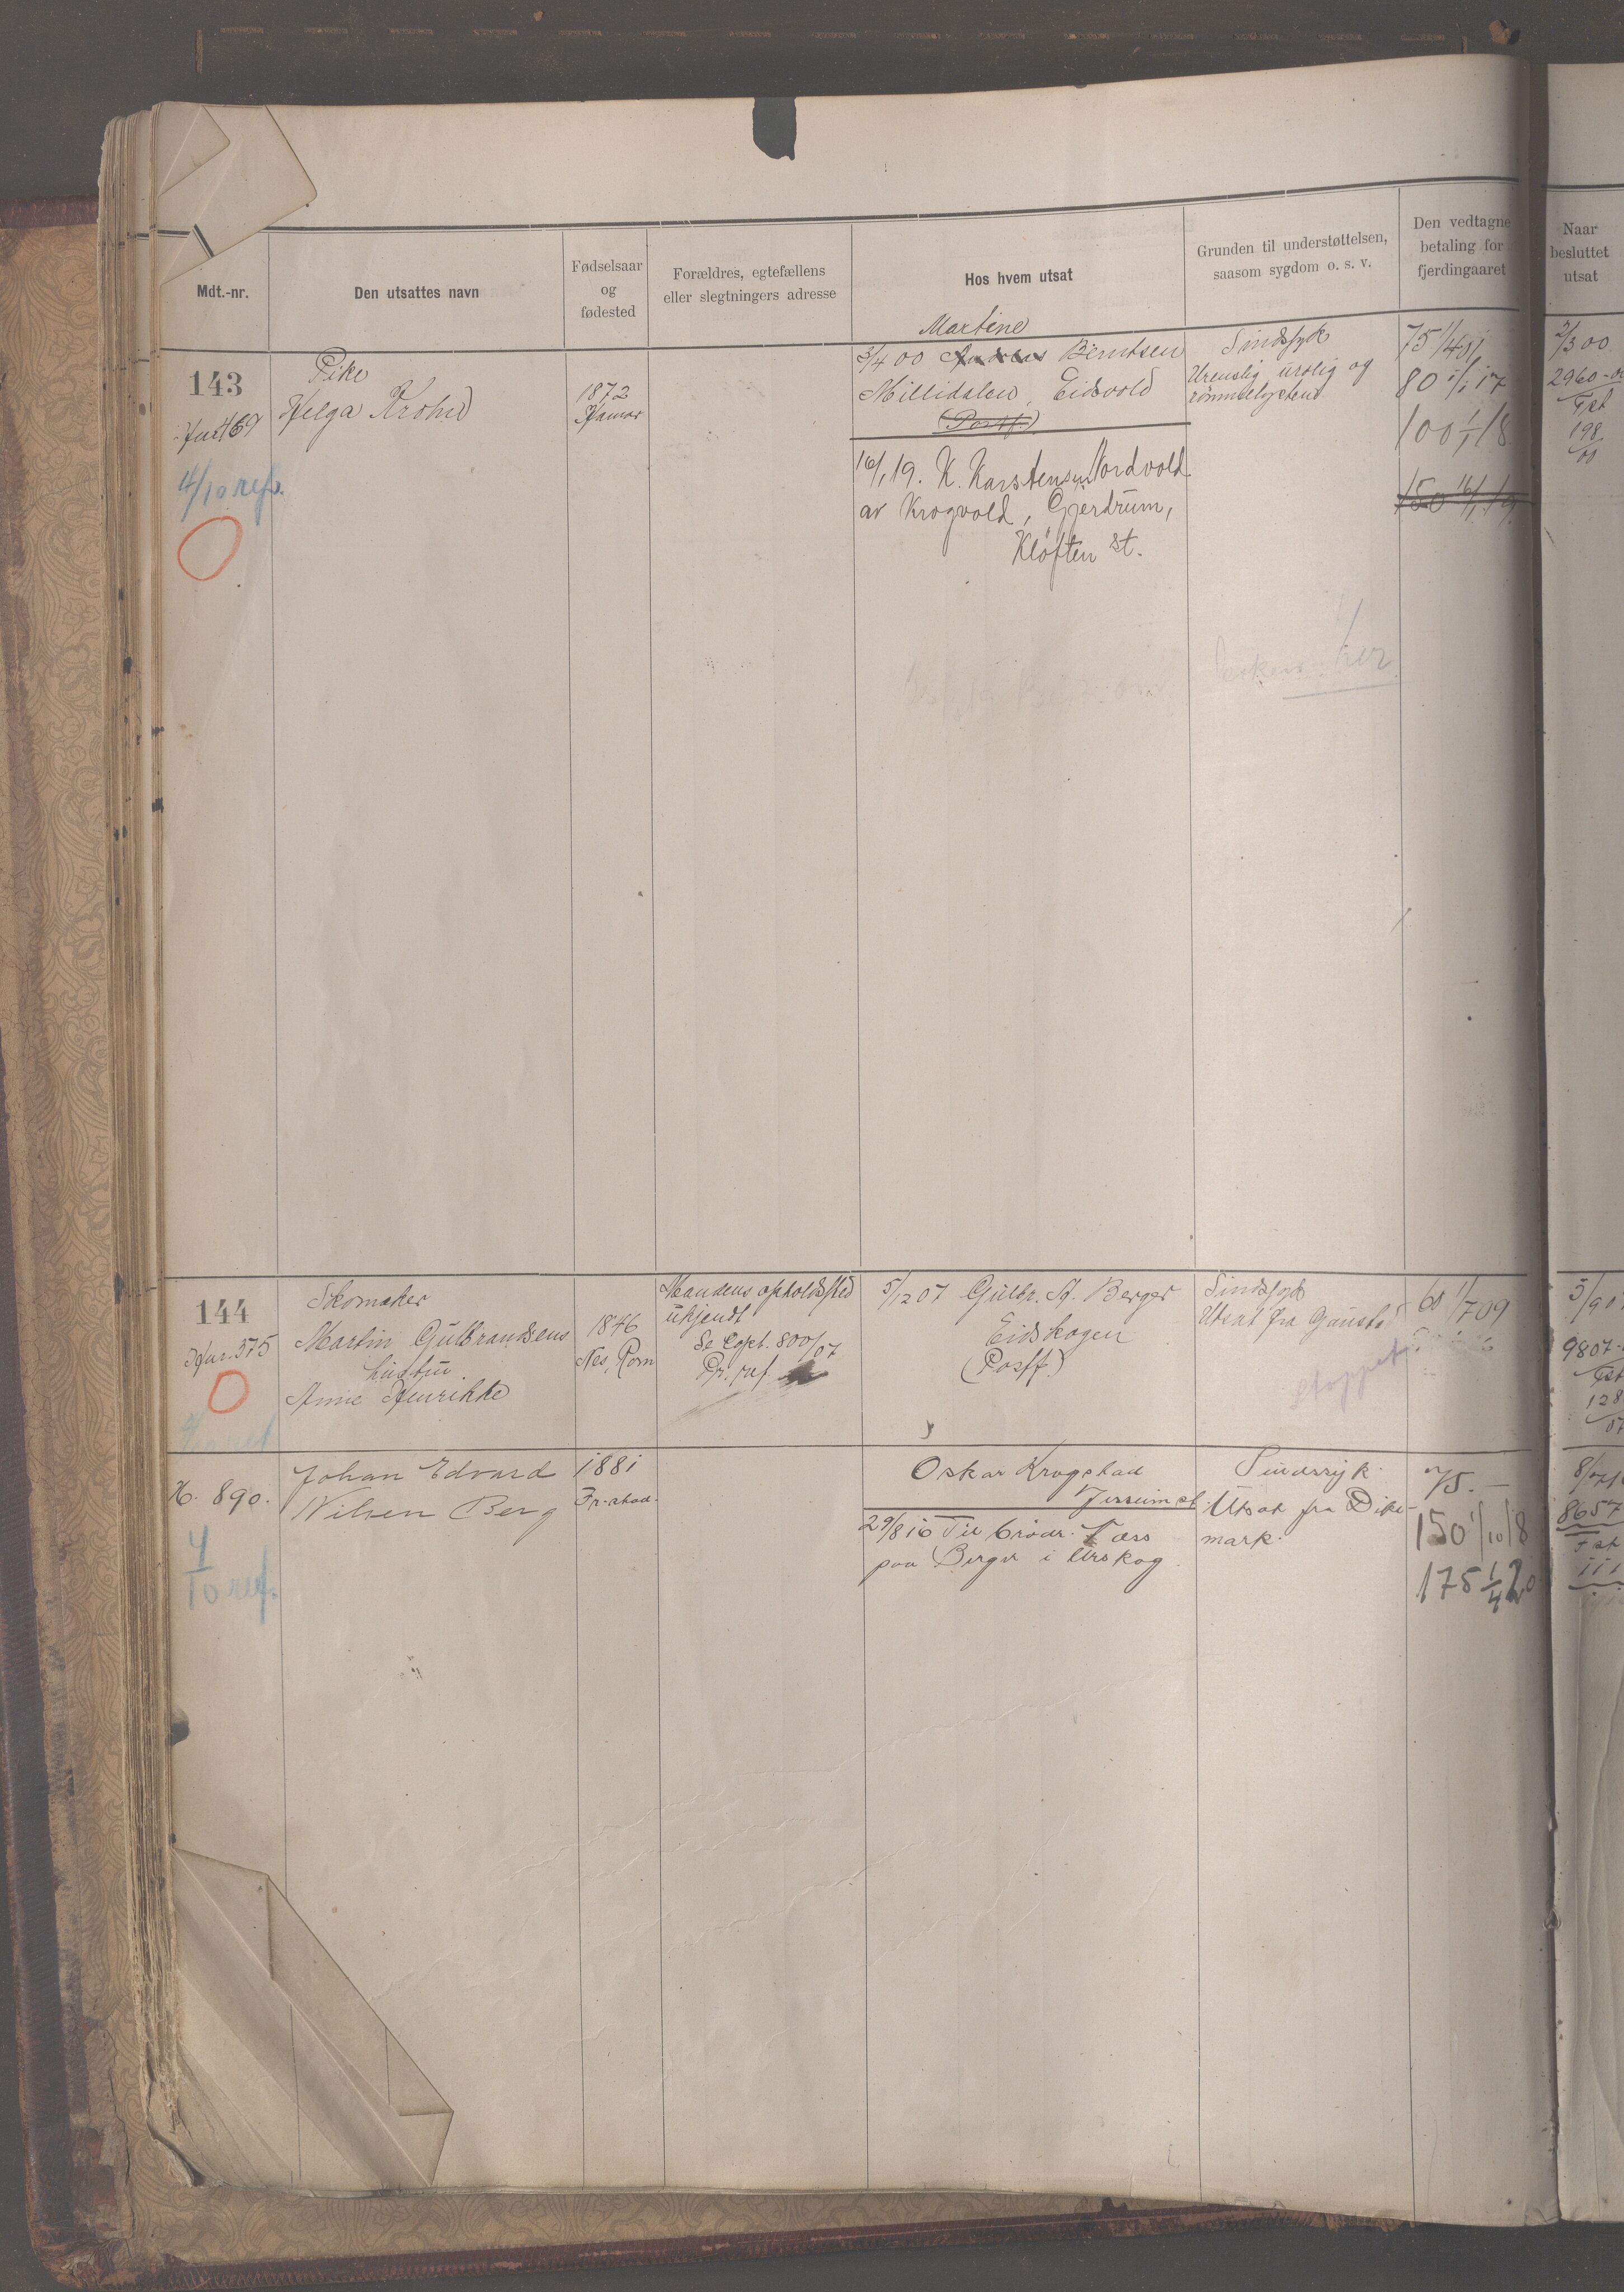 Mdt.-nr.
Den utsattes navn
Fødselsaar
og
fødested
Forældres, egtefællens
eller slegtningers adresse
Hos hvem utsat
Grunden til understøttelsen,
saasom sygdom o. s. v.
Den vedtagne
betaling for
fjerdingaaret
Naar
besluttet
utsat
143
4/10 ref.
Pike
Helga Krohn
1872
Hamar
Martine
3/4 00 Andreas Berntsen
Millidalen, Eidsvold
(Postf.)
16/1 19. K. Karstensen Nordvold
av Krogvold, Gjerdrum,
Kløften st.
Sindssyk
Urenslig urolig og
rømmelysten
75 1/4 01
80 1/1 17
100 1/1 18
150 16/1 19
2/3 00
2960-00
198
00
144
Hur. 375
Skomaker
Martin Gulbrandsens
hustru
Anne Henrikke
1846
Nes, Rom
Mandens opholdssted
ukjendt
Se Copt. 800/07
Pr. ref.
5/12 07 Gulbr. A. Berger
Eidskogen
(Postf.)
Sindssyk
Utsat fra Gaustad
Stoppet
60 1/7 09
5/9 07
9807
128
07
H. 890.
4
10 ref.
Johan Edvard
Nilsen Berg
1881
Fr.stad.
Oskar Krogstad
Jesseim st.
29/8 16 Til brødr. Tass
paa Berger i Urskog.
Sindssyk.
Utsat fra Dike-
mark.
75.-
150 1/10 18
175 1/4 20
8657
111